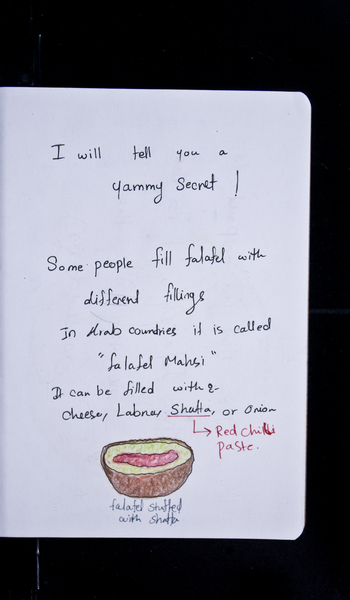 I will tell you a
yammy Secret !
Some people fill falafel with
different fillings
In Arab countries it is called
"falafel Mahsi"
It can be filled with :-
cheese, Labna, Shatta, or Onion
Red chilli
paste.
falafel stuffed
with shatta